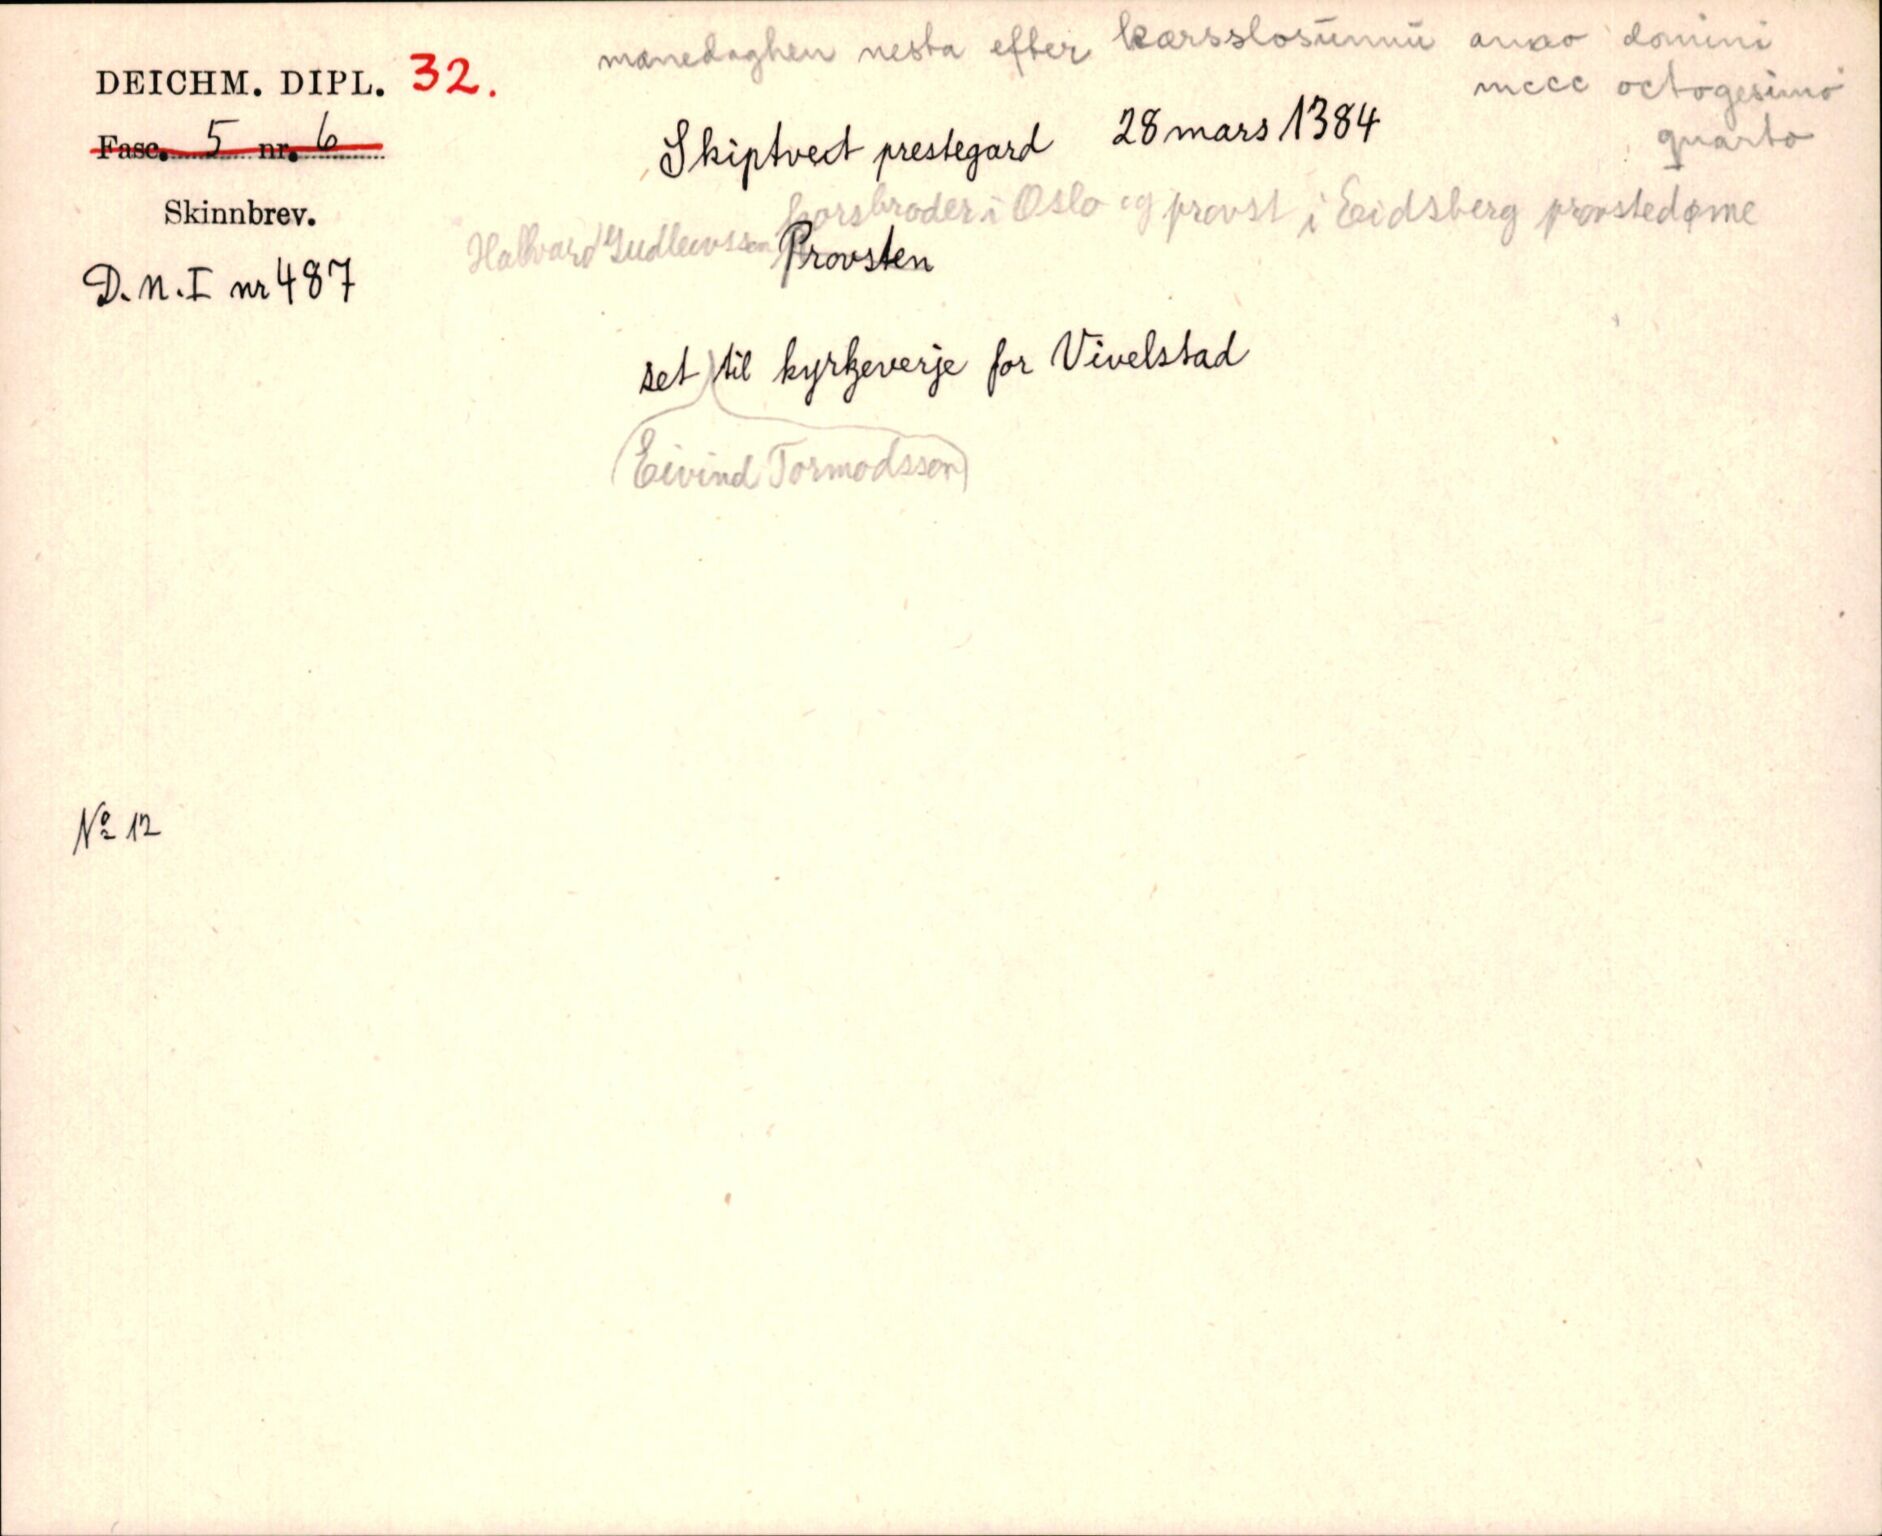 manedaghen nesta efter karsslosünnü anno domini
mccc octogesimo
quarto
DEICHM. DIPL. 32.
Fasc. 5 nr. 6
Skiptvect prestegard 28 mars 1384
Skinnbrev.
korsbroder i Oslo og provst i Eidsberg provstedøme
Hallvard Gudleivsson Provsten
D.N.I nr 487
set til kyrkeverje for Vivelstad
(Eivind Tormodsson)
No 12